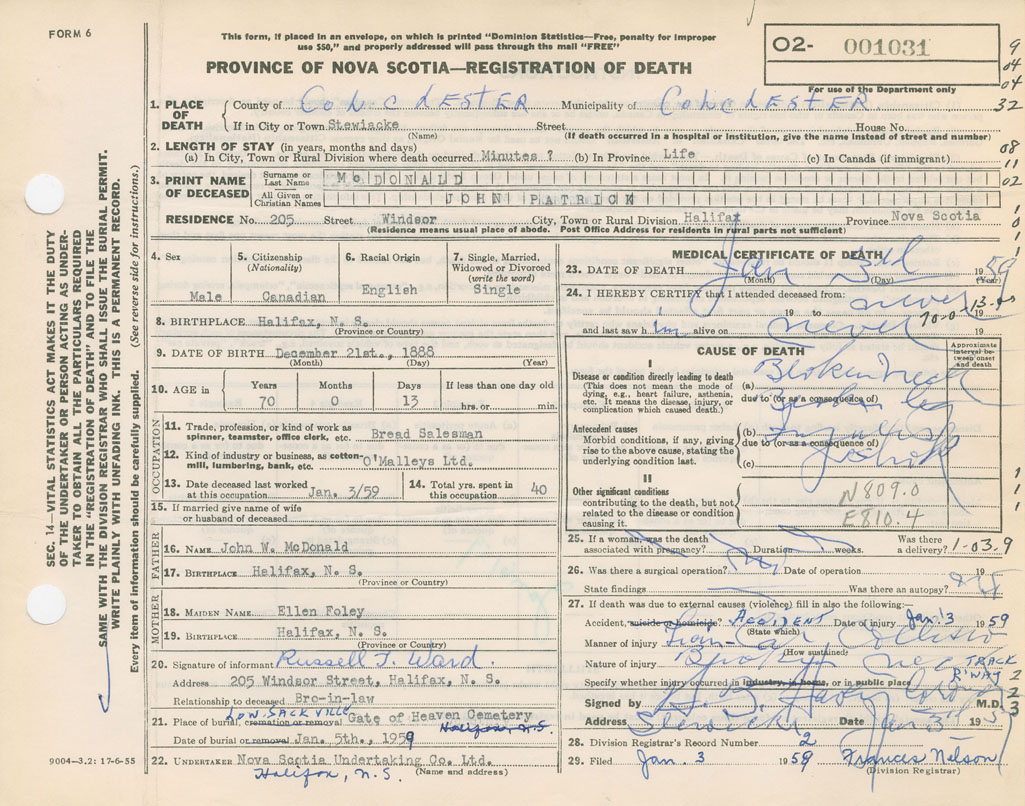 FORM 6
This form, if placed in an envelope, on which is printed "Dominion Statistics—Free, penalty for improper
use $50," and properly addressed will pass through the mail "FREE"
PROVINCE OF NOVA SCOTIA—REGISTRATION OF DEATH
02- 001031
For use of the Department only
9
04
04
32
08
11
02
1. PLACE OF DEATH
County of COLCHESTER Municipality of COLCHESTER
If in City or Town Stewiacke Street House No.
(Name) (If death occurred in a hospital or institution, give the name instead of street and number)
2. LENGTH OF STAY (in years, months and days)
(a) In City, Town or Rural Division where death occurred Minutes ? (b) In Province Life (c) In Canada (if immigrant)
3. PRINT NAME OF DECEASED
Surname or Last Name McDONALD
All Given or Christian Names JOHN PATRICK
RESIDENCE No. 205 Street Windsor City, Town or Rural Division Halifax Province Nova Scotia
(Residence means usual place of abode. Post Office Address for residents in rural parts not sufficient)
4. Sex
Male
5. Citizenship
(Nationality)
Canadian
6. Racial Origin
English
7. Single, Married,
Widowed or Divorced
(write the word)
Single
8. BIRTHPLACE Halifax, N. S.
(Province or Country)
9. DATE OF BIRTH December 21st., 1888
(Month) (Day) (Year)
10. AGE in
Years Months Days If less than one day old
70 0 13 hrs. or min.
OCCUPATION
11. Trade, profession, or kind of work as
spinner, teamster, office clerk, etc. Bread Salesman
12. Kind of industry or business, as cotton-
mill, lumbering, bank, etc. O'Malleys Ltd.
13. Date deceased last worked
at this occupation Jan. 3/59
14. Total yrs. spent in
this occupation 40
15. If married give name of wife
or husband of deceased
FATHER
16. NAME John W. McDonald
17. BIRTHPLACE Halifax, N. S.
(Province or Country)
MOTHER
18. MAIDEN NAME Ellen Foley
19. BIRTHPLACE Halifax, N. S.
(Province or Country)
20. Signature of informant Russell T. Ward.
Address 205 Windsor Street, Halifax, N. S.
Relationship to deceased Bro-in-law
SACKVILLE
21. Place of burial cremation or removal Gate of Heaven Cemetery
Halifax, N.S.
Date of burial or removal Jan. 5th., 1959
22. UNDERTAKER Nova Scotia Undertaking Co. Ltd.
Halifax, N.S. (Name and address)
9004—3.2: 17-6-55
MEDICAL CERTIFICATE OF DEATH
23. DATE OF DEATH Jan 3rd 1959
(Month) (Day) (Year)
24. I HEREBY CERTIFY that I attended deceased from:
never
19 to 19
and last saw him alive on never 19
CAUSE OF DEATH
Approximate
interval be-
tween onset
and death
I
Disease or condition directly leading to death
(This does not mean the mode of
dying, e.g., heart failure, asthenia,
etc. It means the disease, injury, or
complication which caused death.)
(a) Broken neck
due to (or as a consequence of)
Antecedent causes
Morbid conditions, if any, giving
rise to the above cause, stating the
underlying condition last.
(b)
due to (or as a consequence of)
(c)
II
Other significant conditions
contributing to the death, but not
related to the disease or condition
causing it.
N809.0
E810.4
25. If a woman, was the death
associated with pregnancy? Duration weeks.
Was there
a delivery? 1-03.9
26. Was there a surgical operation? Date of operation 19
State findings Was there an autopsy?
27. If death was due to external causes (violence) fill in also the following:—
Accident, suicide or homicide? ACCIDENT Date of injury Jan 3 1959
(State which)
Manner of injury Train - Car Collision
(How sustained)
Nature of injury Broken neck TRACK
Specify whether injury occurred in industry, in home, or in public place R'WAY
Signed by M.D.
Address Stewiacke Date Jan 3rd 195
28. Division Registrar's Record Number 2
29. Filed Jan. 3 1959 Frances Nelson
(Division Registrar)
SEC. 14—VITAL STATISTICS ACT MAKES IT THE DUTY
OF THE UNDERTAKER OR PERSON ACTING AS UNDER-
TAKER TO OBTAIN ALL THE PARTICULARS REQUIRED
IN THE "REGISTRATION OF DEATH" AND TO FILE THE
SAME WITH THE DIVISION REGISTRAR WHO SHALL ISSUE THE BURIAL PERMIT.
WRITE PLAINLY WITH UNFADING INK. THIS IS A PERMANENT RECORD.
Every item of information should be carefully supplied. (See reverse side for instructions.)